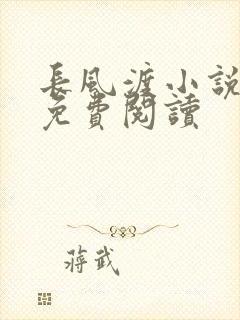 長風渡小說
免費閱讀
蔣武